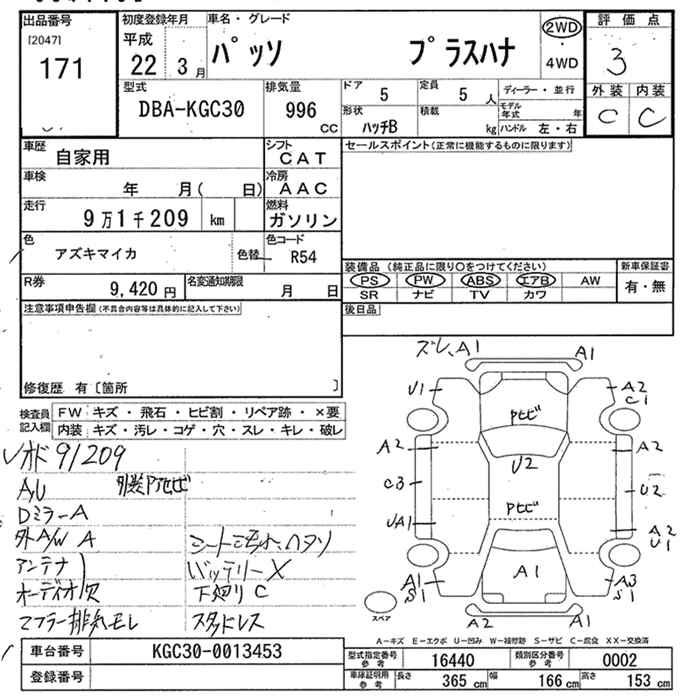 出品番号
[2047]
171
初度登録年月
平成
22 3月
車名・グレード
パッソ プラスハナ
2WD
・
4WD
評価点
3
外装 内装
C C
型式
DBA-KGC30
排気量
996
CC
ドア 5
定員 5人
ディーラー・並行
形状
ハッチB
積載
kg
モデル
年式 年
ハンドル 左・右
車歴
自家用
シフト
CAT
車検
年 月( 日)
冷房
AAC
走行
9万1千209 km
燃料
ガソリン
色
アズキマイカ
色替
色コード
R54
R券
9,420円
名変通知期限
月 日
セールスポイント(正常に機能するものに限ります)
装備品 (純正品に限り○をつけてください)
PS PW ABS エアB AW
SR ナビ TV カワ
新車保証書
有・無
後日品
注意事項申告欄(不具合内容等は具体的に記入して下さい)
修復歴 有〔箇所 〕
検査員
記入欄
FW キズ・飛石・ヒビ割・リペア跡・×要
内装 キズ・汚レ・コゲ・穴・スレ・キレ・破レ
オド 91209
A/U
外装Pトビ
Dミラー A
外A/W A
アンテナ
オーディオ欠
マフラー排気モレ
バッテリー X
下廻り C
スタッドレス
ズレ、A1
A1
U1
A2
C1
Pトビ
A2
U2
A2
C3
U2
Pトビ
UA1
A2
U1
A1
S1
A1
A3
S1
A2
A1
スペア
A-キズ E-エクボ U-凹み W-補修跡 S-サビ C-腐食 XX-交換済
車台番号
KGC30-0013453
登録番号
型式指定番号
参考
16440
類別区分番号
参考
0002
車庫証明用
参考
長さ 365 cm 幅 166 cm 高さ 153 cm